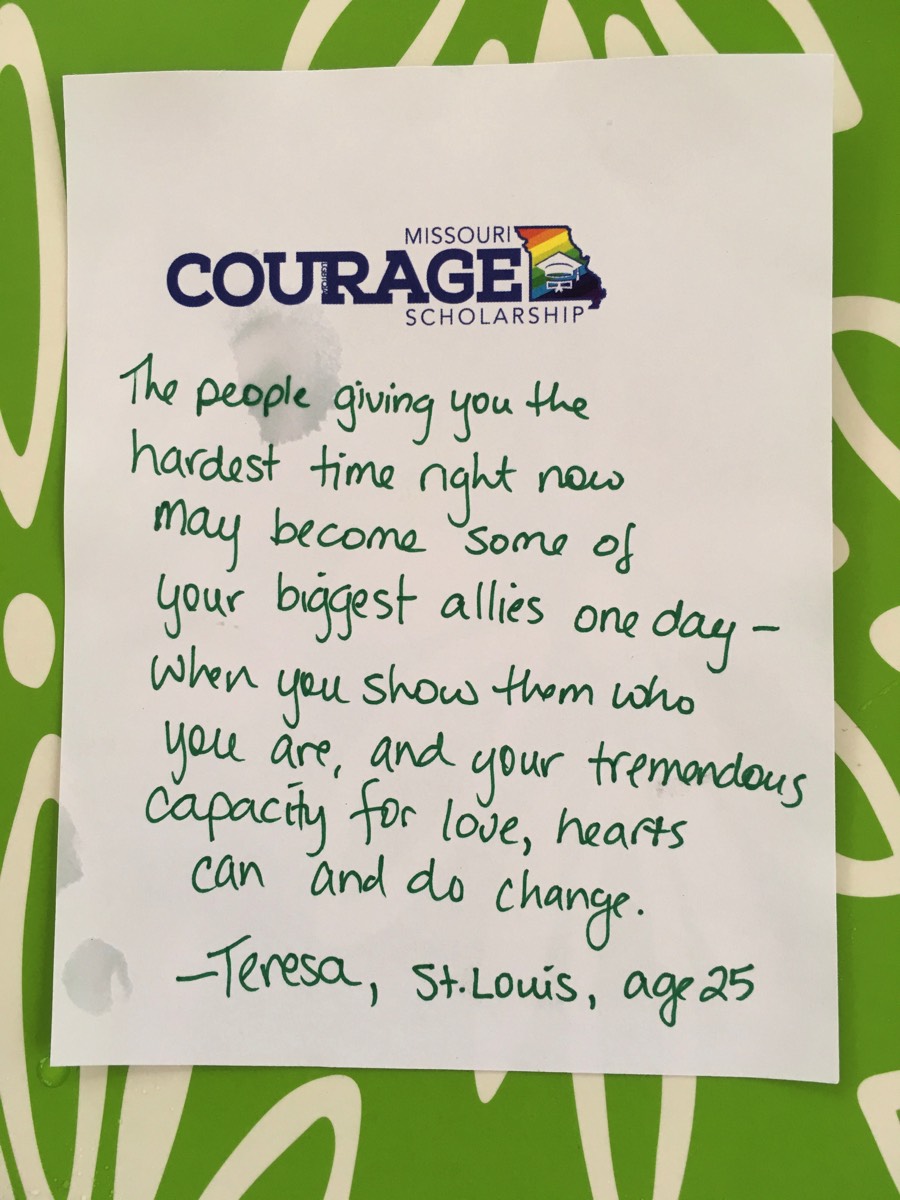 MISSOURI
COURAGE
SCHOLARSHIP
The people giving you the
hardest time right now
may become some of
your biggest allies one day –
when you show them who
you are, and your tremendous
capacity for love, hearts
can and do change.
–Teresa, St. Louis, age 25